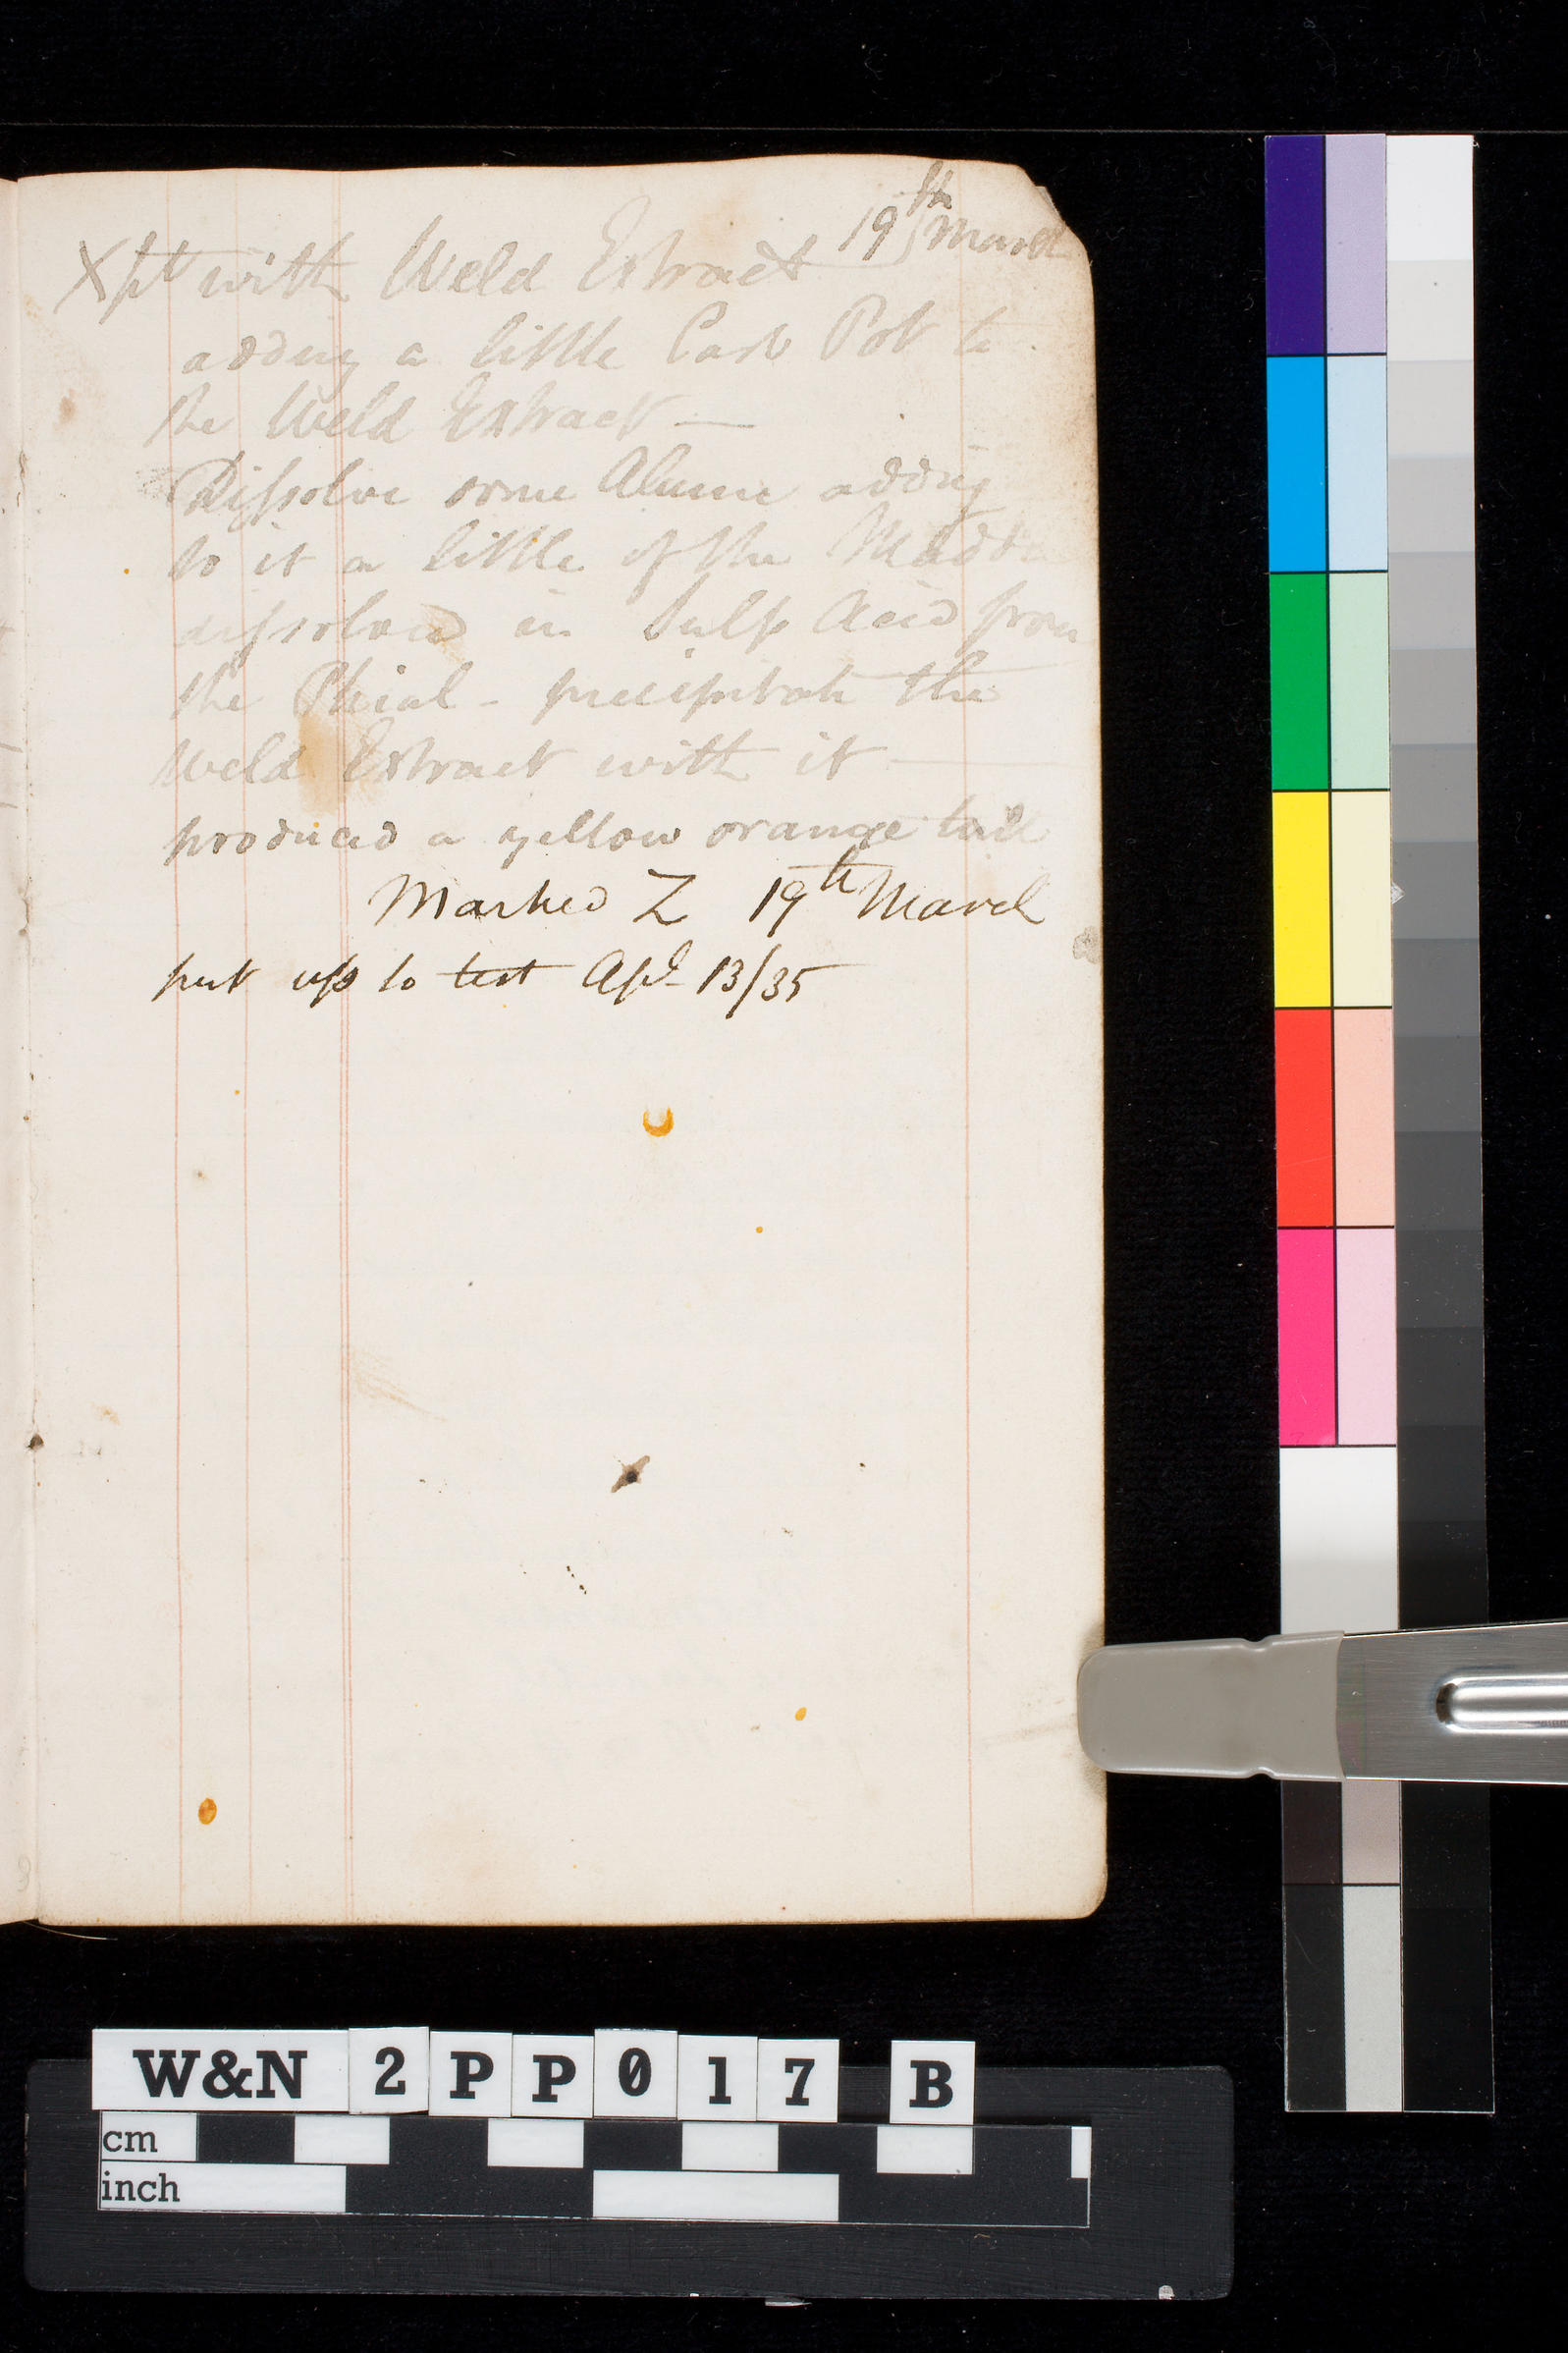 19th March
Xpt with Weld Extract
adding a little Carb Pot to
the Weld Extract —
Dissolve some Alum adding
to it a little of the Madder
dissolved in Sulp Acid from
the Phial - precipitate the
Weld Extract with it —
produced a yellow orange
Marked Z 19th March
put up to test Apl 13/35
W&N 2PP017 B
cm
inch